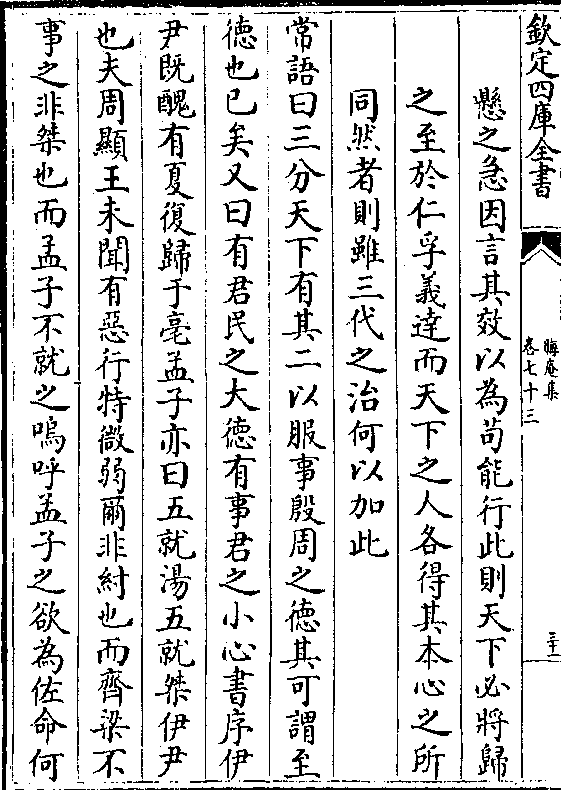 欽定四庫全書
晦庵集
卷七十三
三十一
懸之急因言其效以為苟能行此則天下必將歸
之至於仁孚義達而天下之人各得其本心之所
同然者則雖三代之治何以加此
常語曰三分天下有其二以服事殷周之德其可謂至
德也已矣又曰有君民之大德有事君之小心書序伊
尹既醜有夏復歸于亳孟子亦曰五就湯五就桀伊尹
也夫周顯王未聞有惡行特微弱爾非紂也而齊梁不
事之非桀也而孟子不就之嗚呼孟子之欲為佐命何